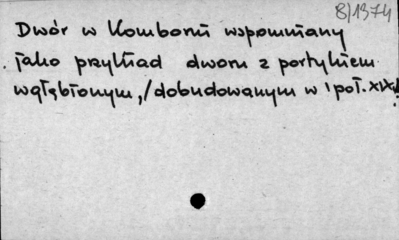 B/1374
Dwór w Komborni wspomniany
jako przykład dworu z portykiem
wgłębionym,/dobudowanym w I poł. XIX w